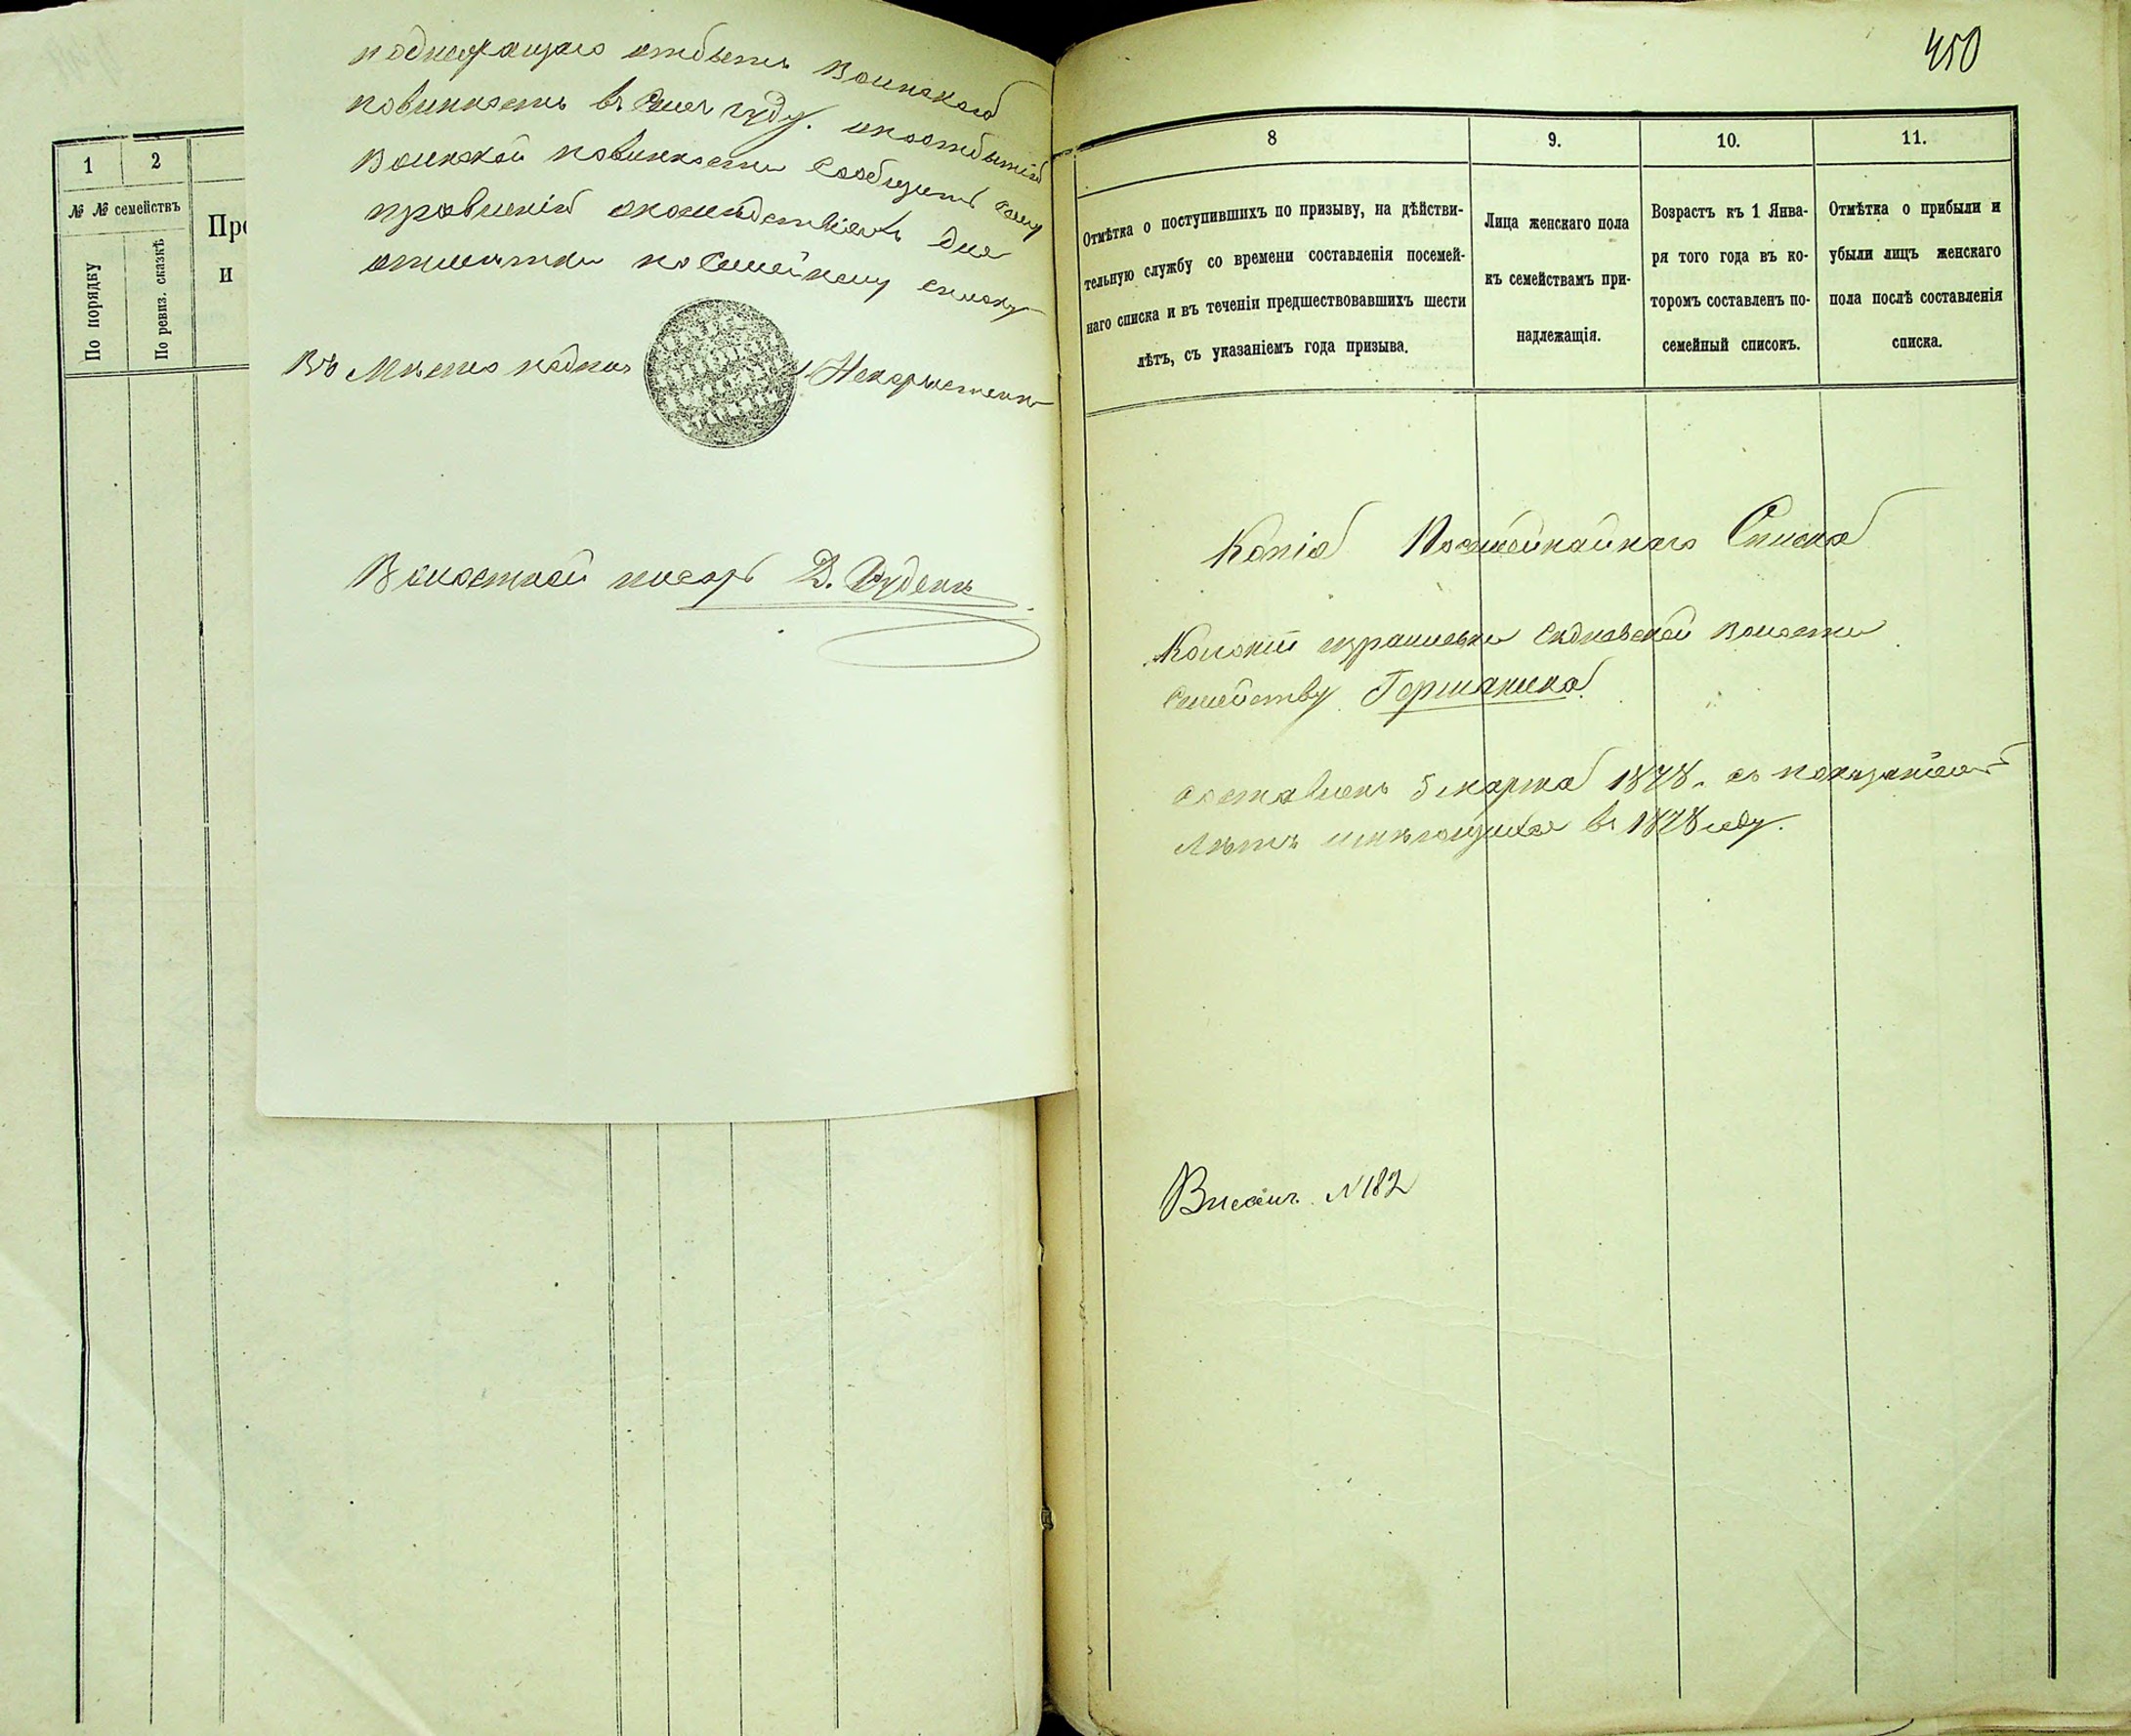 подлежащаго отбыть Воинскою
повинность въ семъ году. и по отбытіи
Воинской повинности сообщить сему
правленію о послѣдствіяхъ для
отмѣтки по Семейному списку
Въ Мѣсто
Волостной писарь Д. Руденк
1
2
№ № семействъ
По порядку
По ревиз. сказкѣ
Про
и
450
8
9.
10.
11.
Отмѣтка о поступившихъ по призыву, на дѣйстви-
тельную службу со времени составленія посемей-
наго списка и въ теченіи предшествовавшихъ шести
лѣтъ, съ указаніемъ года призыва.
Лица женскаго пола
къ семействамъ при-
надлежащія.
Возрастъ къ 1 Янва-
ря того года въ ко-
торомъ составленъ по-
семейный списокъ.
Отмѣтка о прибыли и
убыли лицъ женскаго
пола послѣ составленія
списка.
Копія Списка
Колоніи Волости
Семейству Германика
составленъ 5 марта 1878. съ показаніемъ
Лѣтъ имѣющихся въ 1878 году.
Вписан. N 182